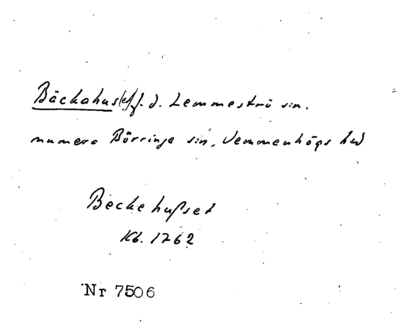 Bäckahus(et) f.d. Lemmeströ sn.
numera Börringe sn, Vemmenhögs hd
Beckehußet
Kb. 1762
Nr 7506